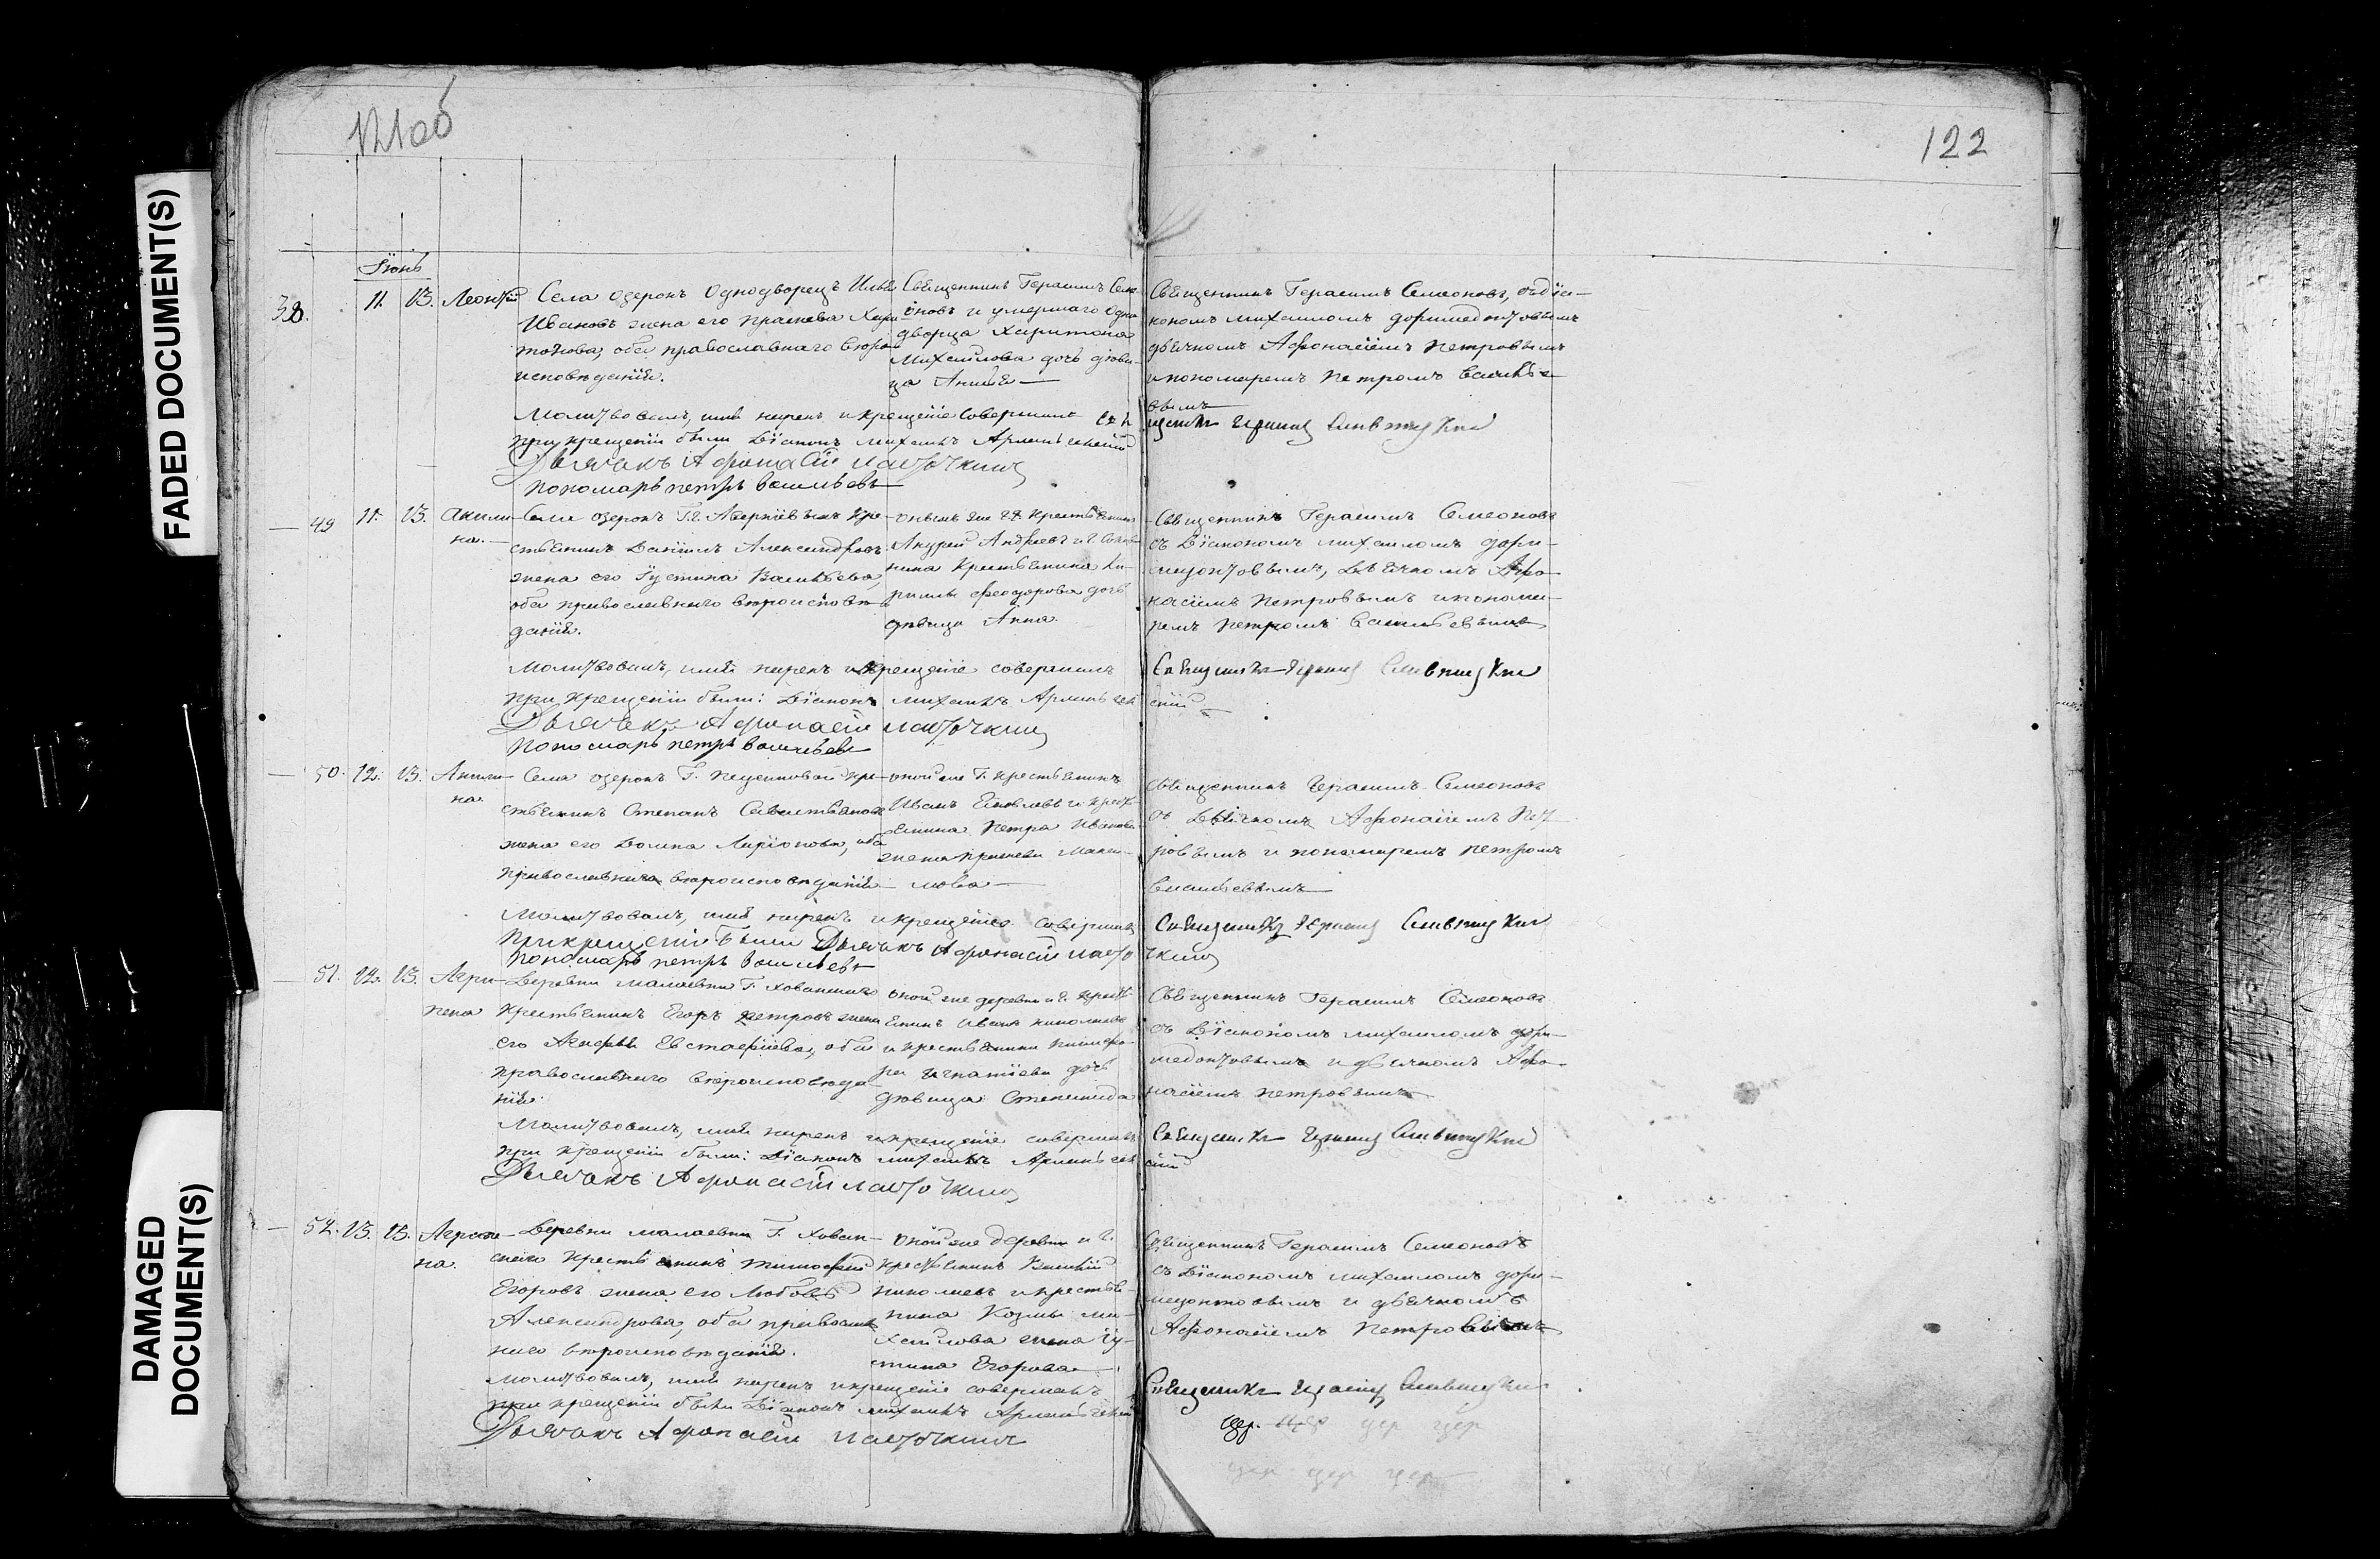 121об
122
Іюнь
38. 11. 13. Леонтій
Села Озерокъ Однодворецъ Илья
Ивановъ жена его Прасковья Хари
тонова, оба православнаго вѣро
исповѣданія.
Священникъ Герасимъ Семе
оновъ и умершаго одно
дворца Харитона
Михайлова дочь дѣви
ца
Священникъ Герасимъ Семеоновъ, съ діа-
кономъ Михаиломъ Доримедонтовымъ
дьячкомъ Афонасіемъ Петровымъ
и пономаремъ Петромъ Василье
вымъ
Молитвовалъ, имя нарекъ и крещеніе совершилъ Свя
щенникъ Герасимъ
при крещеніи были Діаконъ Михаилъ
Дьячокъ Афонасій Ласточкинъ
Пономарь Петръ Васильевъ
49 11. 13. Акили-
на.
Села Озерокъ Г. Аверкіевыхъ кре-
стьянинъ Даніилъ Александровъ
жена его Іустина Васильева,
оба православнаго вѣроисповѣ
данія.
оныхъ же Г. крестьянинъ
Андрей Андреевъ и Г.
крестьянина Ки-
рилы Феодорова дочь
дѣвица Анна.
Священникъ Герасимъ Семеоновъ
съ Діакономъ Михаиломъ Дори-
медонтовымъ, дьячкомъ Афо-
насіемъ Петровымъ и понома-
ремъ Петромъ Васильевымъ
Молитвовалъ, имя нарекъ и крещеніе совершилъ
Священникъ Герасимъ
при крещеніи были: Діаконъ Михаилъ
Дьячокъ Афонасій Ласточкинъ
Пономарь Петръ Васильевъ
50. 12. 13. Акили-
на.
Села Озерокъ Г. кре-
стьянинъ Степанъ Севастьяновъ
жена его Домна Ларіонова, оба
православнаго вѣроисповѣданія
оной же Г. крестьянинъ
Иванъ Яковлевъ и крест
янина Петра Иванова
жена Прасковья Макси-
мова
Священникъ Герасимъ Семеоновъ
съ Дьячкомъ Афонасіемъ Пет
ровымъ и пономаремъ Петромъ
Васильевымъ
Молитвовалъ, имя нарекъ и крещеніе совершилъ
Священникъ Герасимъ
При крещеніи были Дьячокъ Афонасій Ласто
чкинъ
Пономарь Петръ Васильевъ
51. 12. 13. Агри-
пена
Деревни Малаевки Г. Хованскаго
крестьянинъ Егоръ Петровъ жена
его Агафья Евстафіева, оба
православнаго вѣроисповѣда
нія.
оной же деревни и Г. крест
янинъ Иванъ Николаевъ
и крестьянина Никифо-
ра Игнатіева дочь
дѣвица Степанида
Священникъ Герасимъ Семеоновъ
съ Діакономъ Михаиломъ Дори-
медонтовымъ и дьячкомъ Афо-
насіемъ Петровымъ
Молитвовалъ, имя нарекъ и крещеніе совершилъ
Священникъ Герасимъ
при крещеніи были: Діаконъ Михаилъ
Дьячокъ Афонасій Ласточкинъ
52. 13. 13. Агрипе-
на.
Деревни Малаевки Г. Хован-
скаго крестьянинъ Тимофей
Егоровъ жена его Любовь
Александрова, оба православ
наго вѣроисповѣданія.
оной же деревни и Г.
крестьянинъ Василій
Николаевъ и крестья-
нина Козмы Ми-
хайлова жена Іу-
стина Егорова
Священникъ Герасимъ Семеоновъ
съ Діакономъ Михаиломъ Дори-
медонтовымъ и дьячкомъ
Афонасіемъ Петровымъ
Молитвовалъ, имя нарекъ и крещеніе совершилъ
Священникъ Герасимъ
при крещеніи были Діаконъ Михаилъ
Дьячокъ Афонасій Ласточкинъ
FADED DOCUMENT(S)
DAMAGED
DOCUMENT(S)